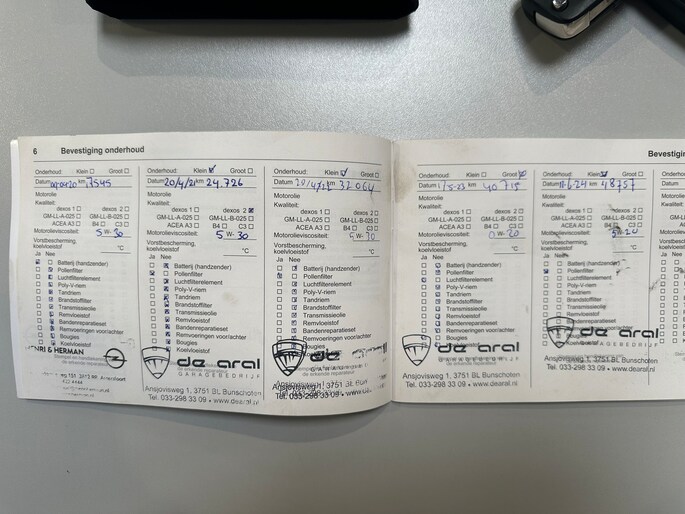 6 Bevestiging onderhoud
Onderhoud: Klein Groot
Datum km 7545
Motorolie
Kwaliteit:
dexos 1 dexos 2
GM-LL-A-025 GM-LL-B-025
ACEA A3 B4 C3
Motorolieviscositeit: 5 W- 30
Vorstbescherming,
koelvloeistof °C
Ja Nee
Batterij (handzender)
Pollenfilter
Luchtfilterelement
Poly-V-riem
Tandriem
Brandstoffilter
Transmissieolie
Remvloeistof
Bandenreparatieset
Remvoeringen voor/achter
Bougies
Koelvloeistof
& HERMAN
Onderhoud: Klein Groot
Datum 20/4/21 km 24.726
Motorolie
Kwaliteit:
dexos 1 dexos 2
GM-LL-A-025 GM-LL-B-025
ACEA A3 B4 C3
Motorolieviscositeit: 5 W- 30
Vorstbescherming,
koelvloeistof °C
Ja Nee
Batterij (handzender)
Pollenfilter
Luchtfilterelement
Poly-V-riem
Tandriem
Brandstoffilter
Transmissieolie
Remvloeistof
Bandenreparatieset
Remvoeringen voor/achter
Bougies
Koelvloeistof
de aral
GARAGEBEDRIJF
Ansjovisweg 1, 3751 BL Bunschoten
Tel. 033-298 33 09 • www.dearal.nl
Onderhoud: Klein Groot
Datum km 32064
Motorolie
Kwaliteit:
dexos 1 dexos 2
GM-LL-A-025 GM-LL-B-025
ACEA A3 B4 C3
Motorolieviscositeit:
Vorstbescherming,
koelvloeistof °C
Ja Nee
Batterij (handzender)
Pollenfilter
Luchtfilterelement
Poly-V-riem
Tandriem
Brandstoffilter
Transmissieolie
Remvloeistof
Bandenreparatieset
Remvoeringen voor/achter
Bougies
Koelvloeistof
Ansjovisweg 1, 3751 BL
Tel. 033-298 33 09 • www.dearal.nl
Bevestiging
Onderhoud: Klein Groot
Datum km 40715
Motorolie
Kwaliteit:
dexos 1 dexos 2
GM-LL-A-025 GM-LL-B-025
ACEA A3 B4 C3
Motorolieviscositeit: 0 W- 20
Vorstbescherming,
koelvloeistof °C
Ja Nee
Batterij (handzender)
Pollenfilter
Luchtfilterelement
Poly-V-riem
Tandriem
Brandstoffilter
Transmissieolie
Remvloeistof
Bandenreparatieset
Remvoeringen voor/achter
Bougies
Koelvloeistof
de aral
GARAGEBEDRIJF
Ansjovisweg 1, 3751 BL Bunschoten
Tel. 033-298 33 09 • www.dearal.nl
Onderhoud: Klein Groot
Datum km 48757
Motorolie
Kwaliteit:
dexos 1 dexos 2
GM-LL-A-025 GM-LL-B-025
ACEA A3 B4 C3
Motorolieviscositeit: W- 20
Vorstbescherming,
koelvloeistof °C
Ja Nee
Batterij (handzender)
Pollenfilter
Luchtfilterelement
Poly-V-riem
Tandriem
Brandstoffilter
Transmissieolie
Remvloeistof
Bandenreparatieset
Remvoeringen voor/achter
Bougies
Koelvloeistof
de aral
GARAGEBEDRIJF
Ansjovisweg 1, 3751 BL Bunschoten
Tel. 033-298 33 09 • www.dearal.nl